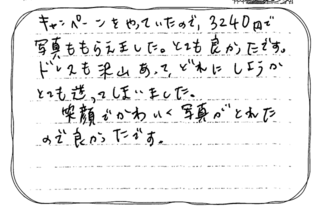 キャンペーンをやっていたので、3240円で
写真ももらえました。とても良かったです。
ドレスも沢山あって、どれにしようか
とても迷ってしまいました。
笑顔でかわいく写真がとれた
ので良かったです。